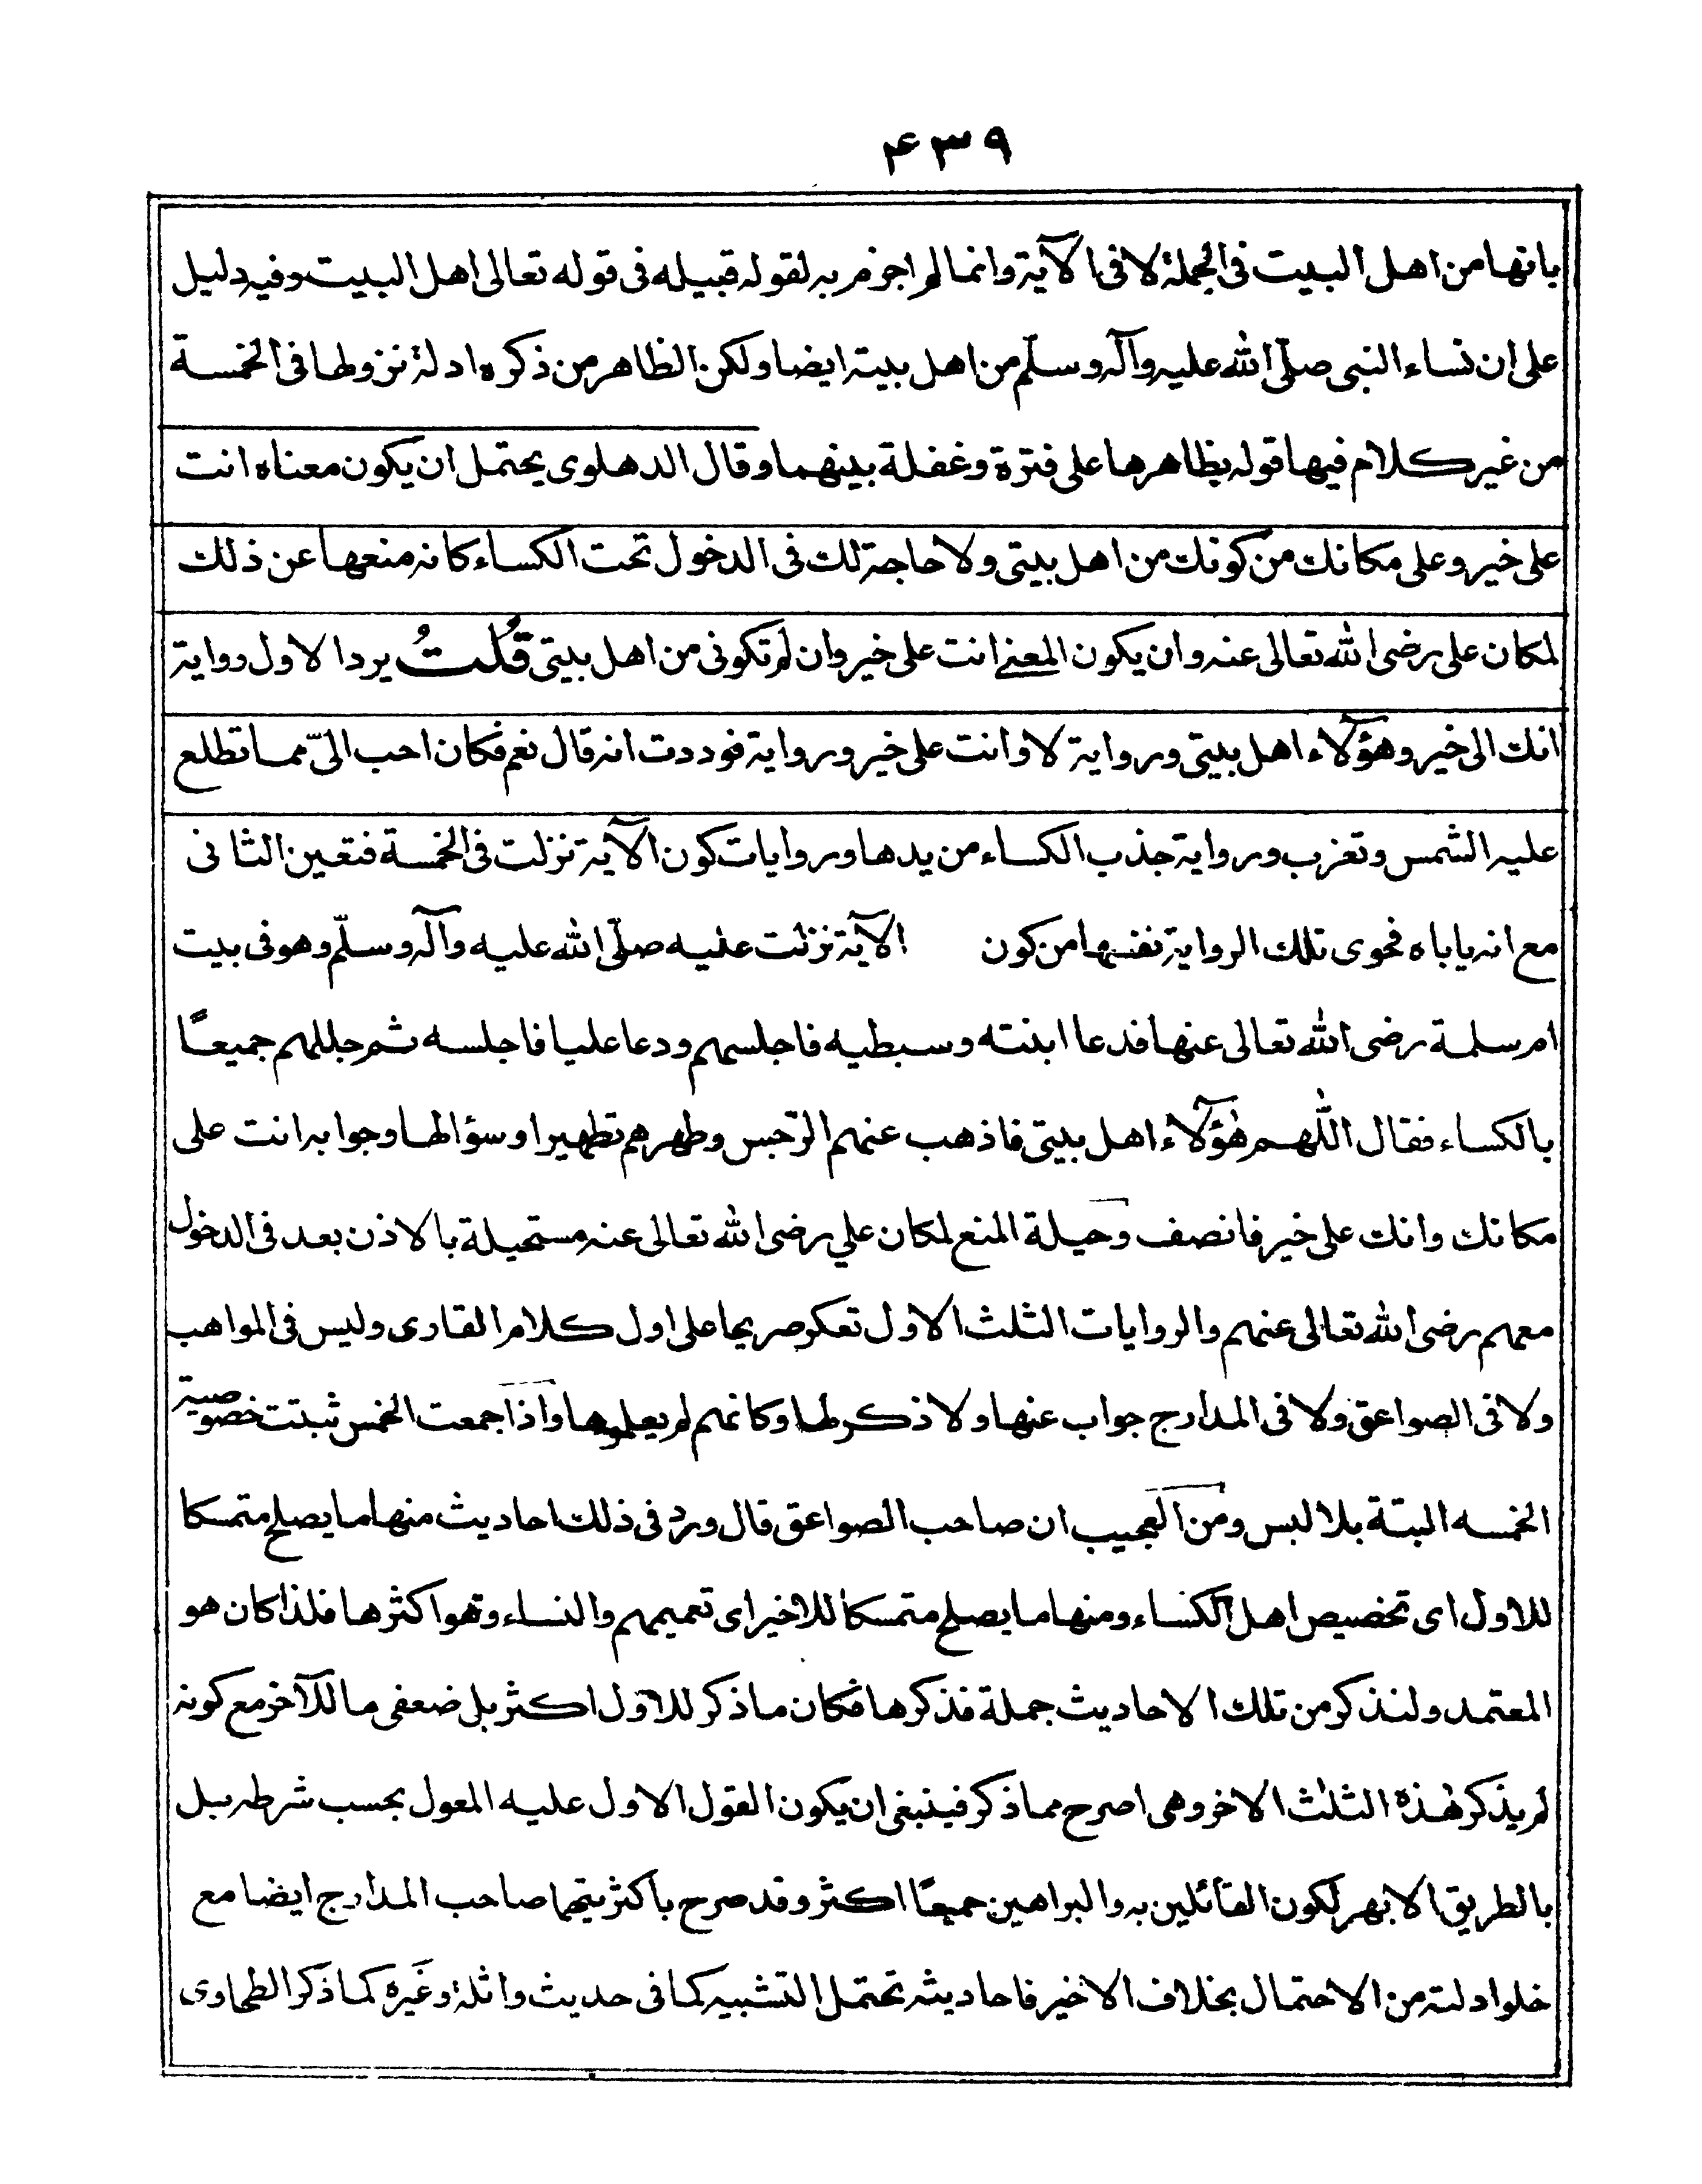 ۴۳۹
بانها من اهل البيت فى الجملة لا فى الآية وانما لم اجزم به لقوله قبيله فى قوله تعالى اهل البيت وفيه دليل
على ان نساء النبى صلّى الله عليه وآله وسلّم من اهل بيته ايضا ولكن الظاهر من ذكره ادلة نزولها فى الخمسة
من غير كلام فيها قوله بظاهرها على فترة وغفلة بينهما وقال الدهلوى يحتمل ان يكون معناه انت
على خير وعلى مكانك من كونك من اهل بيتى ولا حاجة لك فى الدخول تحت الكساء كانه منعها عن ذلك
لمكان على رضى الله تعالى عنه وان يكون المعنے انت على خير وان لم تكونى من اهل بيتى قُلتُ يرد الاول رواية
انك الى خير وهؤلآء اهل بيتى ورواية لا وانت على خير ورواية فوددت انه قال نعم فكان احب الىّ مما تطلع
عليه الشمس وتغرب ورواية جذب الكساء من يدها وروايات كون الآية نزلت فى الخمسة فتعين الثانى
مع انه ياباه فحوى تلك الرواية نفسها من كون الآية نزلت عليه صلّى الله عليه وآله وسلّم وهو فى بيت
ام سلمة رضى الله تعالى عنها فدعا ابنته وسبطيه فاجلسهم ودعا عليا فاجلسه ثم جللهم جميعًا
بالكساء فقال اللّهم هٰؤلآء اهل بيتى فاذهب عنهم الرّجس وطهرهم تطهيرا وسؤالها وجوابه انت على
مكانك وانك على خير فانصف وحيلة المنع لمكان علي رضى الله تعالى عنه مستحيلة بالاذن بعد فى الدخول
معهم رضى الله تعالى عنهم والروايات الثلث الاول تعكر صريحا على اول كلام القارى وليس فى المواهب
ولا فى الصواعق ولا فى المدارج جواب عنها ولا ذكر لها وكانهم لم يعلموها واذا جمعت الخمس ثبتت خصوصية
الخمسه البتة بلا لبس ومن العجيب ان صاحب الصواعق قال ورد فى ذلك احاديث منها ما يصلح متمسكا
للاول اى تخصيص اهل الكساء ومنها ما يصلح متمسكا للاخير اى تعميمهم والنساء وهو اكثرها فلذا كان هو
المعتمد ولنذكر من تلك الاحاديث جملة فذكرها فكان ما ذكر للاول اكثر بل ضعفى ما للآخر مع كونه
لم يذكر هٰذه الثلٰث الاخر وهى اصرح مما ذكر فينبغى ان يكون القول الاول عليه المعول بحسب شرطه بل
بالطريق الابهر لكون القائلين به والبراهين جميعًا اكثر وقد صرح باكثريتهما صاحب المدارج ايضا مع
خلو ادلته من الاحتمال بخلاف الاخير فاحاديثه تحتمل التشبيه كما فى حديث واثلة وغَيره كما ذكر الطحاوى